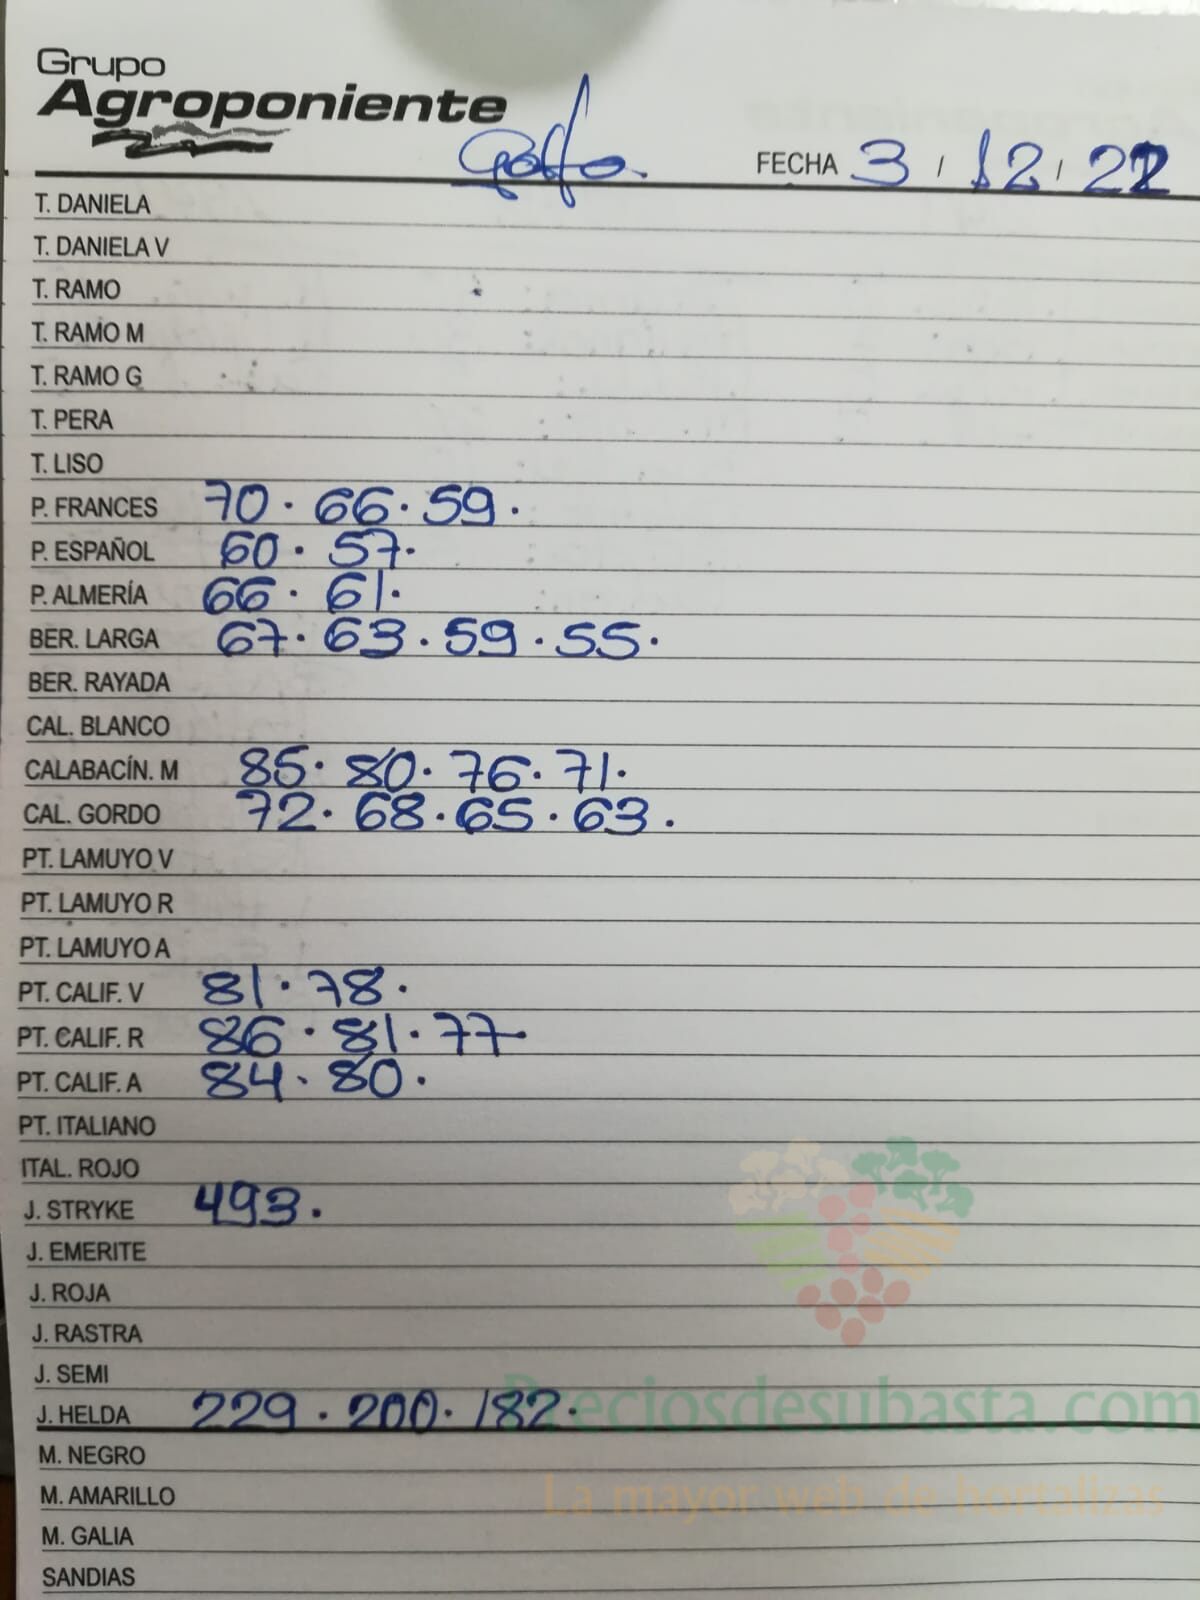 Grupo
Agroponiente
Golfo. FECHA 3 / 12 / 22
T. DANIELA
T. DANIELA V
T. RAMO
T. RAMO M
T. RAMO G
T. PERA
T. LISO
P. FRANCES 70 · 66 · 59 ·
P. ESPAÑOL 60 · 57 ·
P. ALMERÍA 66 · 61 ·
BER. LARGA 67 · 63 · 59 · 55 ·
BER. RAYADA
CAL. BLANCO
CALABACÍN. M 85 · 80 · 76 · 71 ·
CAL. GORDO 72 · 68 · 65 · 63 ·
PT. LAMUYO V
PT. LAMUYO R
PT. LAMUYO A
PT. CALIF. V 81 · 78 ·
PT. CALIF. R 86 · 81 · 77
PT. CALIF. A 84 · 80 ·
PT. ITALIANO
ITAL. ROJO
J. STRYKE 493 ·
J. EMERITE
J. ROJA
J. RASTRA
J. SEMI
J. HELDA 229 · 200 · 182 ·
Preciosdesubasta.com
M. NEGRO
M. AMARILLO
La mayor web de hortalizas
M. GALIA
SANDIAS